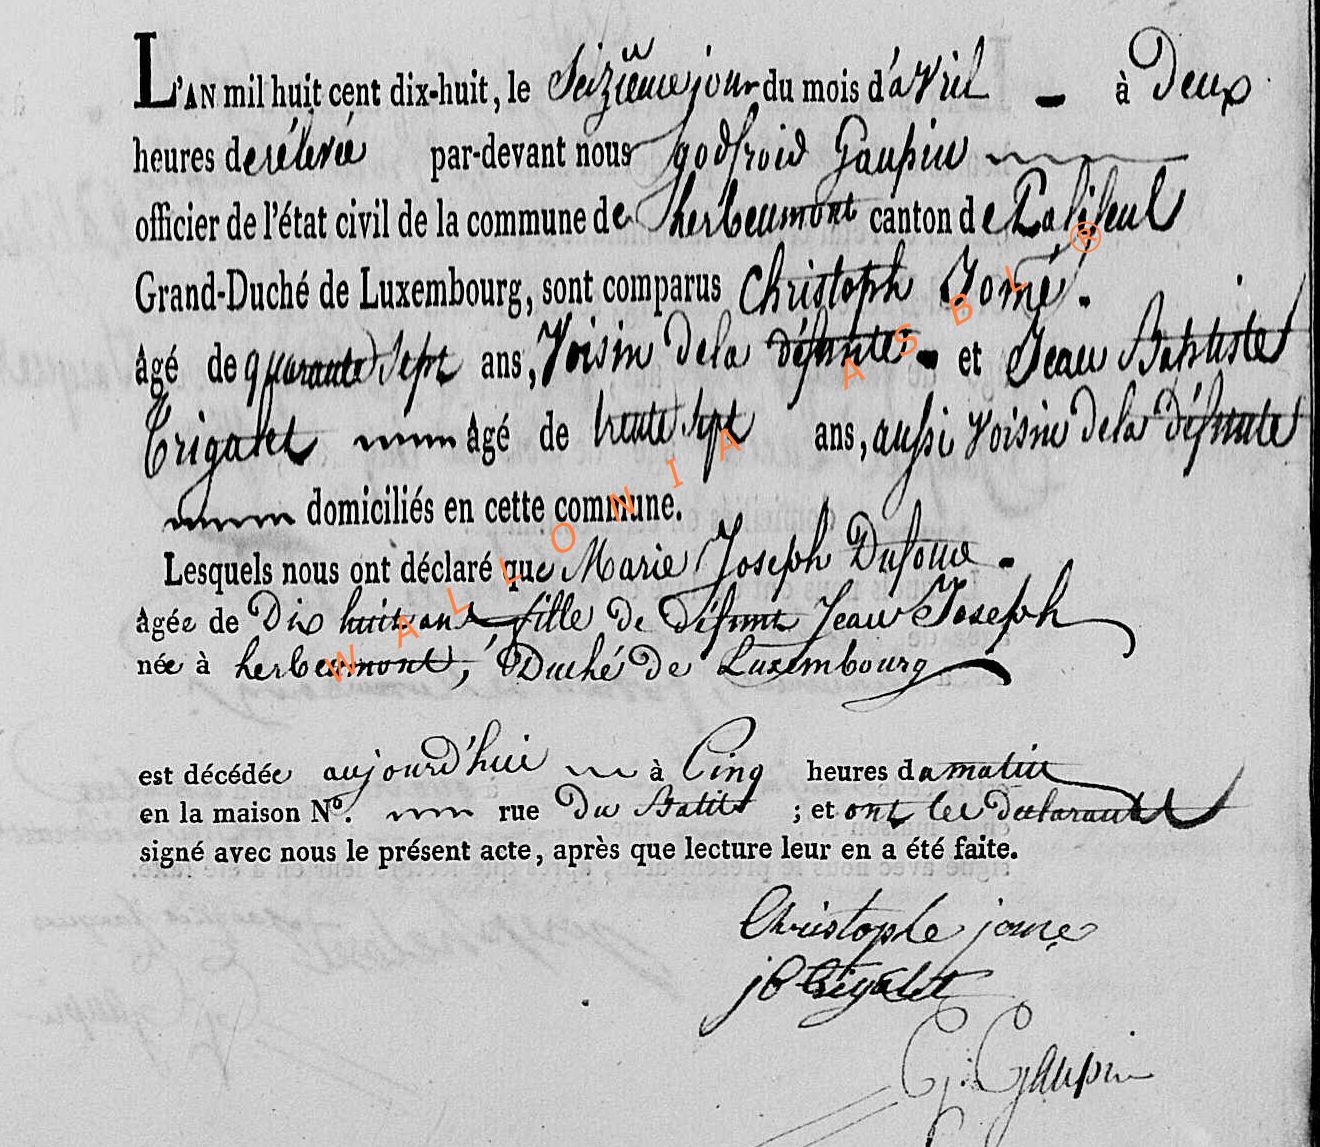 L'AN mil huit cent dix-huit, le Seizième jour du mois d'avril - à Deux
heures de rélevée par-devant nous godfroid Gaupin
officier de l'état civil de la commune de herbeumont canton de Paliseul
Grand-Duché de Luxembourg, sont comparus Christoph Jomé.
âgé de quarante Sept ans, Voisin de la défunte - et Jean Baptiste
Trigalet âgé de trente Sept ans, aussi Voisin de la défunte
domiciliés en cette commune.
Lesquels nous ont déclaré que Marie Joseph Dufour.
âgée de Dix huit ans fille de Défunt Jean Joseph
née à herbeumont, G Duché De Luxembourg
est décédée aujourd'hui à Cinq heures du matin
en la maison Nº. rue Du ; et ont les declarants
signé avec nous le présent acte, après que lecture leur en a été faite.
Christophe jome
jB trigalet
G: Gaupin
WALLONIA ASBL ®